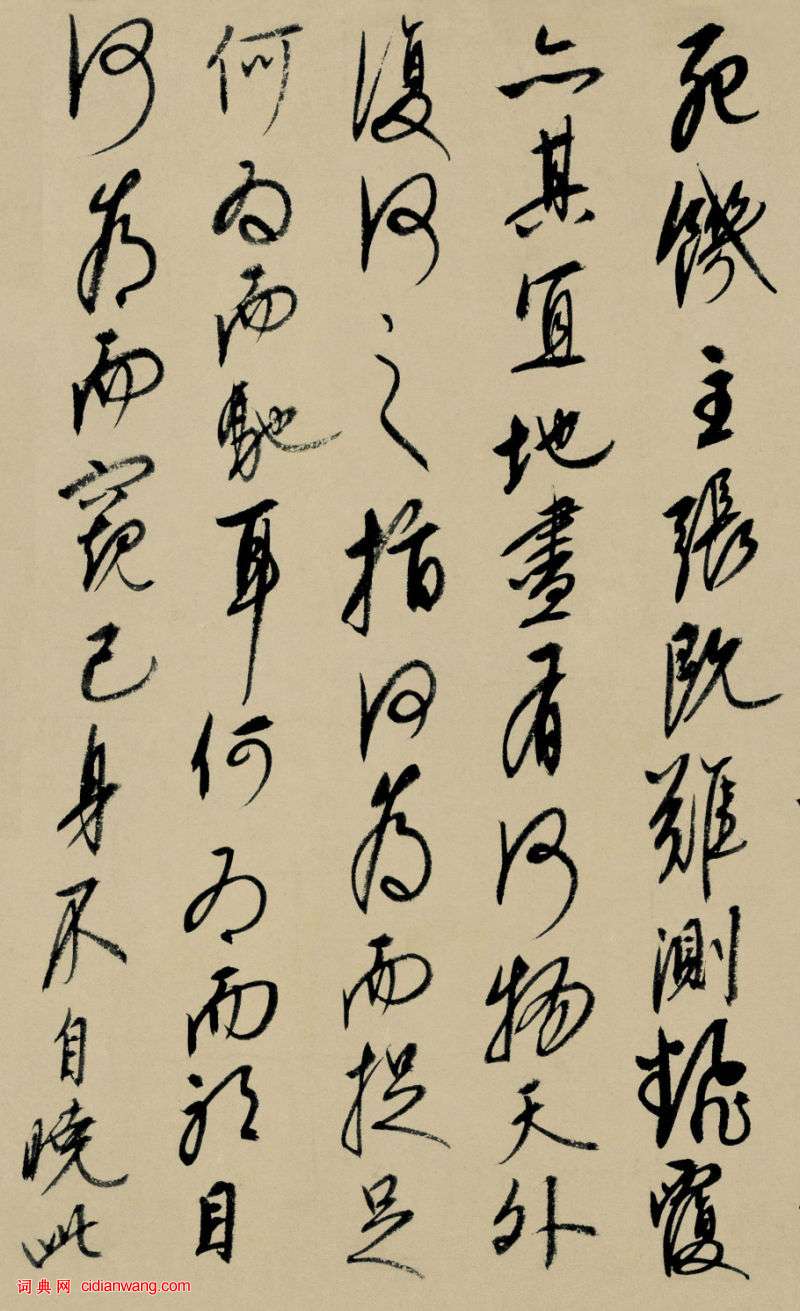 死饑主張既難測飜覆
亦其宜地盡有何物天外
復何之指何為而捉足
何為而馳耳何為而聽目
何為而窺己身不自曉此
词典网 cidianwang.com